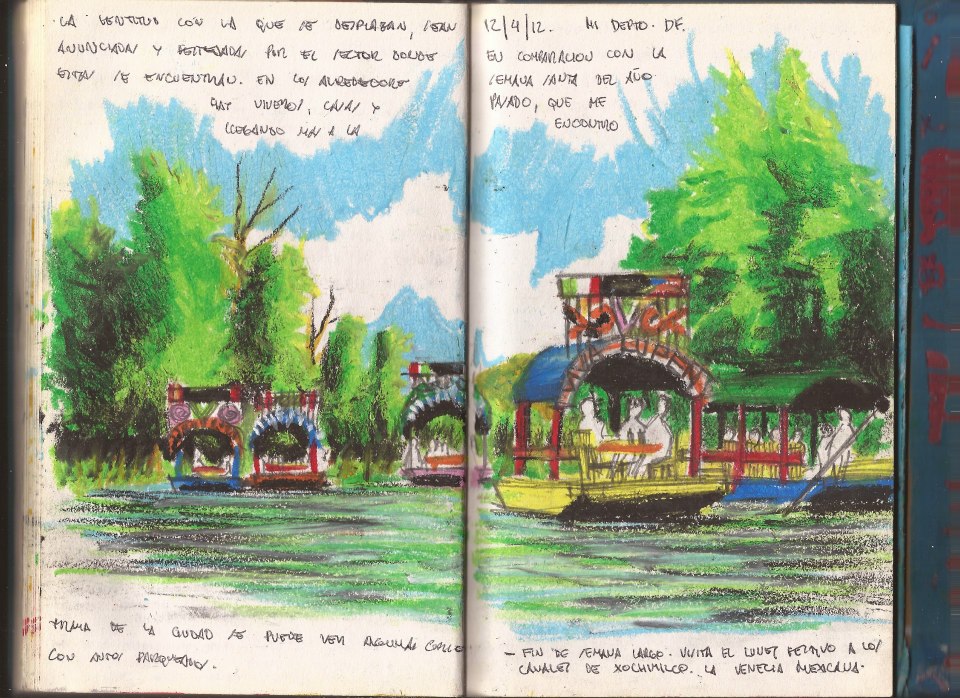 LA LENTITUD CON LA QUE SE DESPLAZAN, SEAN
ANUNCIADAS Y FESTEJADAS POR EL SECTOR DONDE
ESTAS SE ENCUENTRAN. EN LOS ALREDEDORE
HAY VIVEROS, CASAS Y
LLEGANDO MAS A LA
TRAMA DE LA CIUDAD SE PUEDE VER ALGUNAS CALLE
CON AUTOS PARQUEADOS.
12/4/12. MI DEPTO. DF.
EN COMPARACION CON LA
SEMANA SANTA DEL AÑO
PASADO, QUE ME
ENCONTRO
VIVA LUPE
- FIN DE SEMANA LARGO. VISITA EL LUNES FESTIVO A LOS
CANALES DE XOCHIMILCO. LA VENECIA MEXICANA.